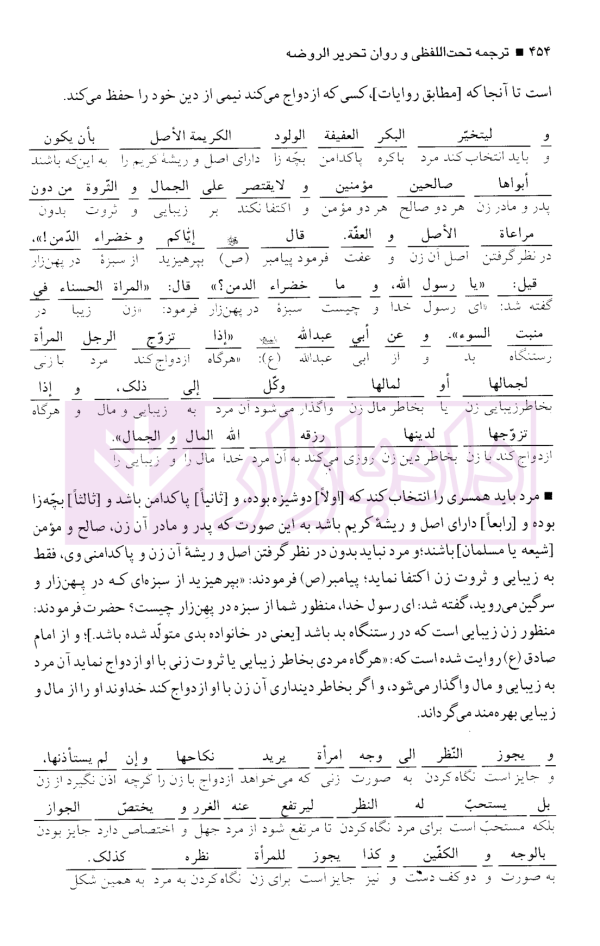 ۴۵۴ ■ ترجمه تحت‌اللفظی و روان تحریر الروضه
است تا آنجا که [مطابق روایات]، کسی که ازدواج می‌کند نیمی از دین خود را حفظ می‌کند.
و لیتخیّر البکر العفیفة الولود الکریمة الأصل بأن یکون
و باید انتخاب کند مرد باکره پاکدامن بچّه زا دارای اصل و ریشهٔ کریم را به این‌که باشند
أبواها صالحین مؤمنین و لایقتصر علی الجمال و الثّروة من دون
پدر و مادر زن هر دو صالح هر دو مؤمن و اکتفا نکند بر زیبایی و ثروت بدون
مراعاة الأصل و العفّة. قال ﷺ إیّاکم و خضراء الدّمن!»،
در نظر گرفتن اصل آن زن و عفت فرمود پیامبر (ص) بپرهیزید از سبزهٔ در پهن‌زار
قیل: «یا رسول الله، و ما خضراء الدمن؟» قال: «المراة الحسناء في
گفته شد: «ای رسول خدا و چیست سبزهٔ در پهن‌زار فرمود: «زن زیبا در
منبت السوء». و عن أبي عبدالله «إذا تزوّج الرجل المرأة
رستنگاه بد و از ابی عبدالله (ع): «هرگاه ازدواج کند مرد با زنی
لجمالها أو لمالها وکّل إلی ذلک، و إذا
بخاطر زیبایی زن یا بخاطر مال زن واگذار می شود آن مرد به زیبایی و مال و هرگاه
تزوّجها لدینها رزقه الله المال و الجمال».
ازدواج کند با زن بخاطر دین زن روزی می‌کند به آن مرد خدا مال را و زیبایی را
■ مرد باید همسری را انتخاب کند که [اولاً] دوشیزه بوده، و [ثانیاً] پاکدامن باشد و [ثالثاً] بچّه‌زا
بوده و [رابعاً] دارای اصل و ریشهٔ کریم باشد به این صورت که پدر و مادر آن زن، صالح و مؤمن
[شیعه یا مسلمان] باشند؛ و مرد نباید بدون در نظر گرفتن اصل و ریشهٔ آن زن و پاکدامنی وی، فقط
به زیبایی و ثروت زن اکتفا نماید؛ پیامبر(ص) فرمودند: «بپرهیزید از سبزه‌ای که در پهن‌زار و
سرگین می‌روید، گفته شد: ای رسول خدا، منظور شما از سبزه در پهن‌زار چیست؟ حضرت فرمودند:
منظور زن زیبایی است که در رستنگاه بد باشد [یعنی در خانواده بدی متولّد شده باشد.]؛ و از امام
صادق (ع) روایت شده است که: «هرگاه مردی بخاطر زیبایی یا ثروت زنی با او ازدواج نماید آن مرد
به زیبایی و مال واگذار می‌شود، و اگر بخاطر دینداری آن زن با او ازدواج کند خداوند او را از مال و
زیبایی بهره‌مند می‌گرداند.
و یجوز النّظر الی وجه امرأة یرید نکاحها و إن لم یستأذنها،
و جایز است نگاه کردن به صورت زنی که می‌خواهد ازدواج با زن را گرچه اذن نگیرد از زن
بل یستحبّ له النظر لیرتفع عنه الغرر و یختصّ الجواز
بلکه مستحبّ است برای مرد نگاه کردن تا مرتفع شود از مرد جهل و اختصاص دارد جایز بودن
بالوجه و الکفّین و کذا یجوز للمرأة نظره کذلک.
به صورت و دو کف دست و نیز جایز است برای زن نگاه کردن به مرد به همین شکل
دادبازار